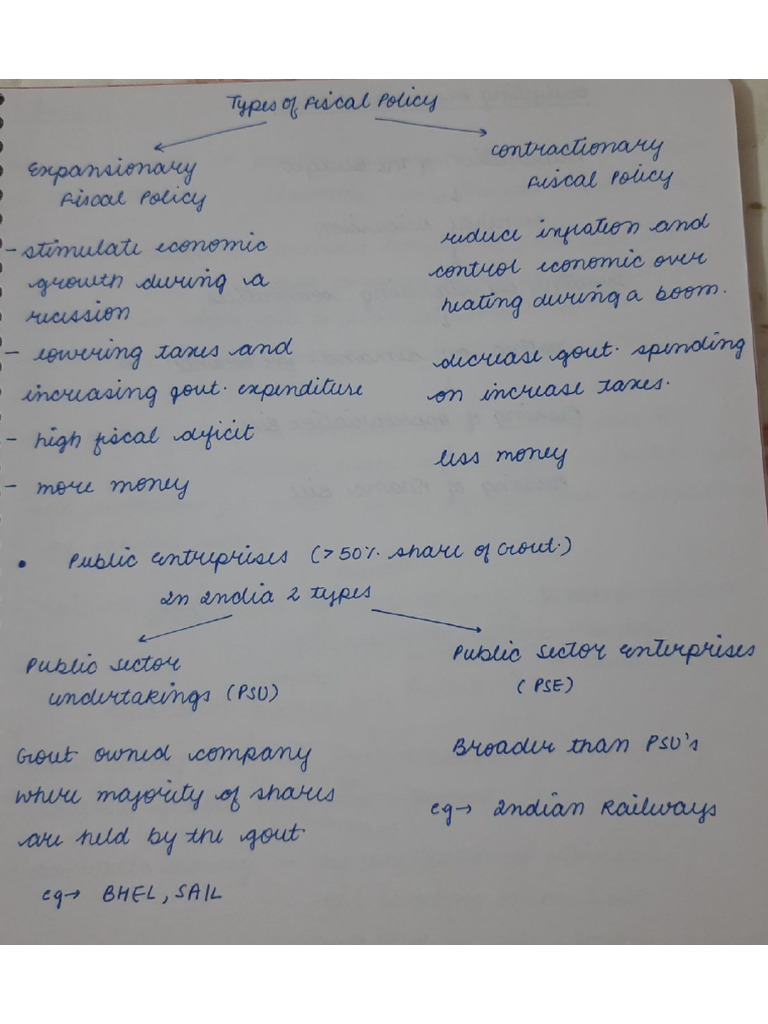 Types of Fiscal Policy
Expansionary
Fiscal Policy
- stimulate economic
growth during a
recission
- lowering taxes and
increasing govt. expenditure
- high fiscal deficit
- more money
Contractionary
Fiscal Policy
reduce inflation and
control economic over
heating during a boom.
decrease govt. spending
on increase taxes.
less money
• Public Entreprises (>50% share of Govt.)
In India 2 types
Public Sector
undertakings (PSU)
Govt owned company
where majority of shares
are held by the govt
eg→ BHEL, SAIL
Public Sector Enterprises
(PSE)
Broader than PSU's
eg→ Indian Railways